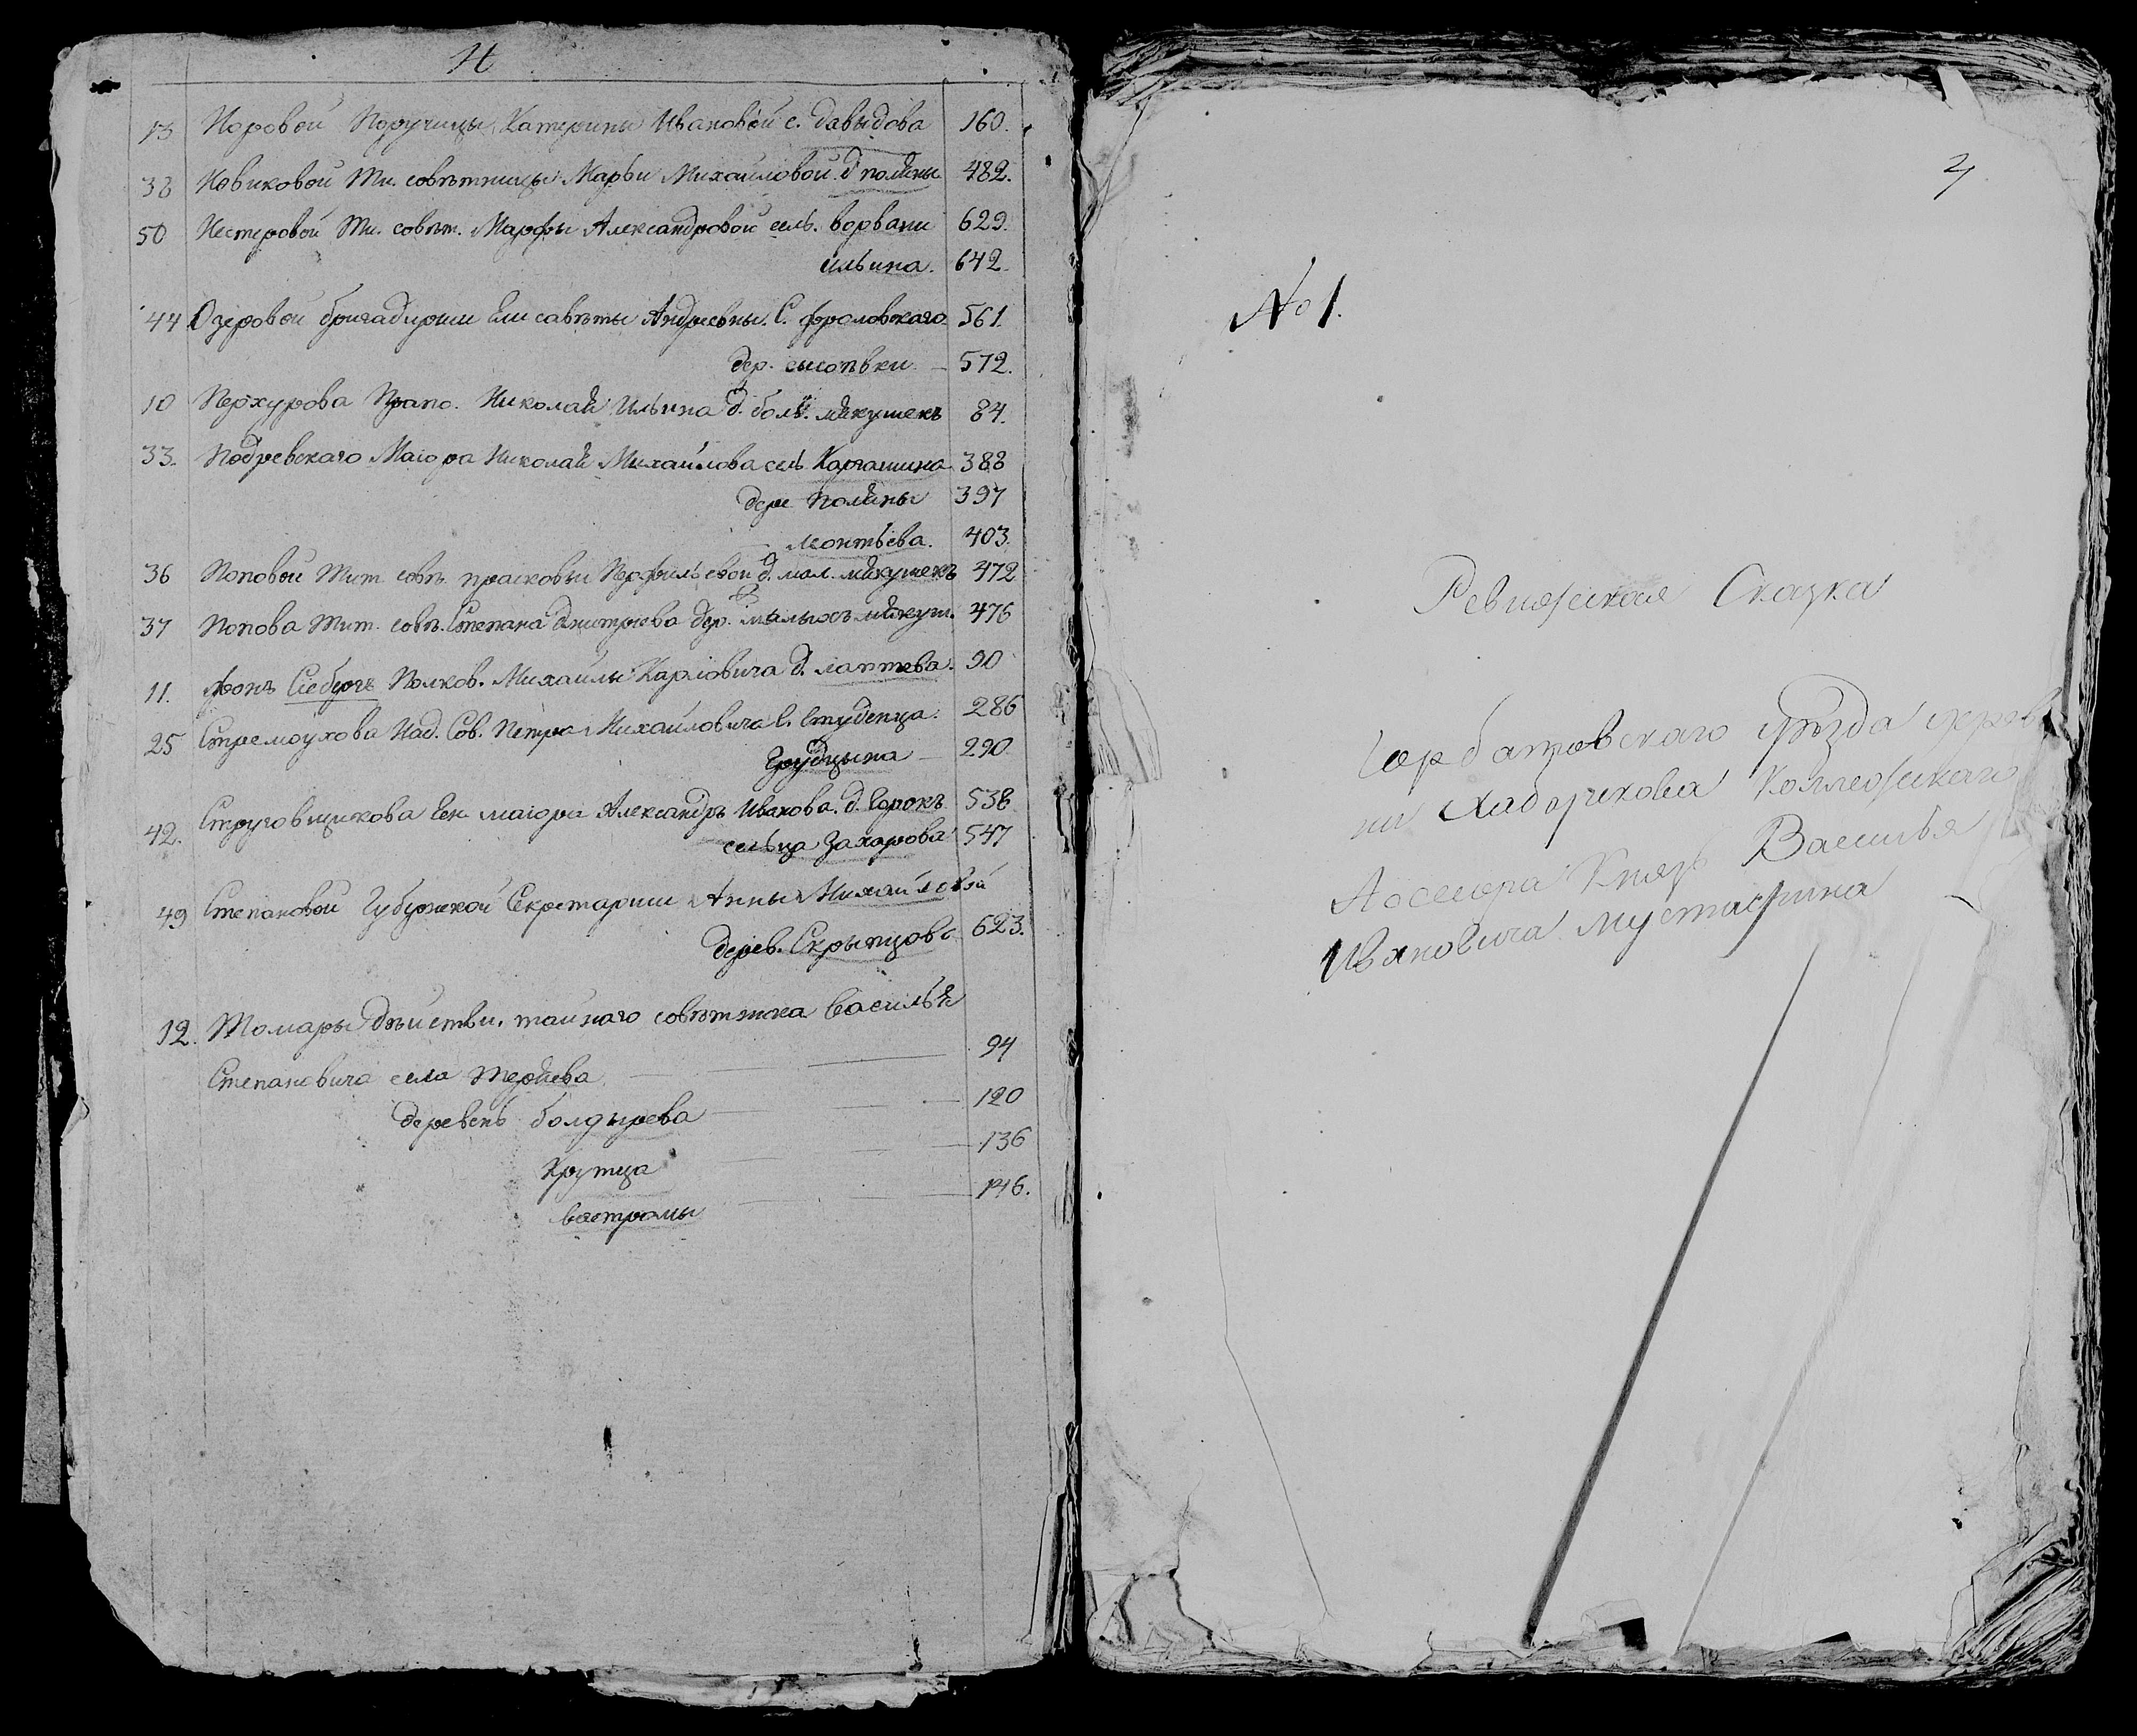 Н
13 Норовой Поручицы Катерины Ивановой с. Давыдова 160.
38 Новиковой Ти. совѣтницы Марьи Михайловой д поляны 482.
50 Нестеровой Ти. совѣт. Марфы Александровой сель. ворвани 629.
ильина. 642.
44 Озеровой бригадирши Елисавѣты Андреевны. С. фроловскаго 561.
дер. 572.
10 Перхурова Прапо. Николая Ильина д. боль. мякушекъ 84.
33. Подревскаго Маіора Николая Михайлова сель Каргашина 388
дере Поляны 397
леонтьева. 403.
36 Поповой Тит. совѣ. прасковьи Перфильевой д. мал. мякушекъ 472
37 Попова Тит. совѣ. Степана Дмитриева дер. малыхъ мякуш. 476
11. фонъ Полков. Михаилы Карловича д. лаптева. 90
25 Стремоухова Над. Сов. Петра Михайловича С. Студенца. 286
Грудцына 290
42. Струговщикова Ген маіора Александръ Иванова. д. Горокъ 538
сельца Захарова 547
49 Степановой Губернской Секретарши Анны Михайловой
дерев. Скрыпцова 623.
12. Томары Дѣйстви. тайнаго совѣтника Василья
Степановича села Теряева 94
деревень болдырева 120
Крутца 136
вострамы 146.
2
№ 1.
Ревижская Сказка
Горбатовскаго уѣзда дерев
ни Хаборскова Коллежскаго
Ассесора Князь Василья
Ивановича